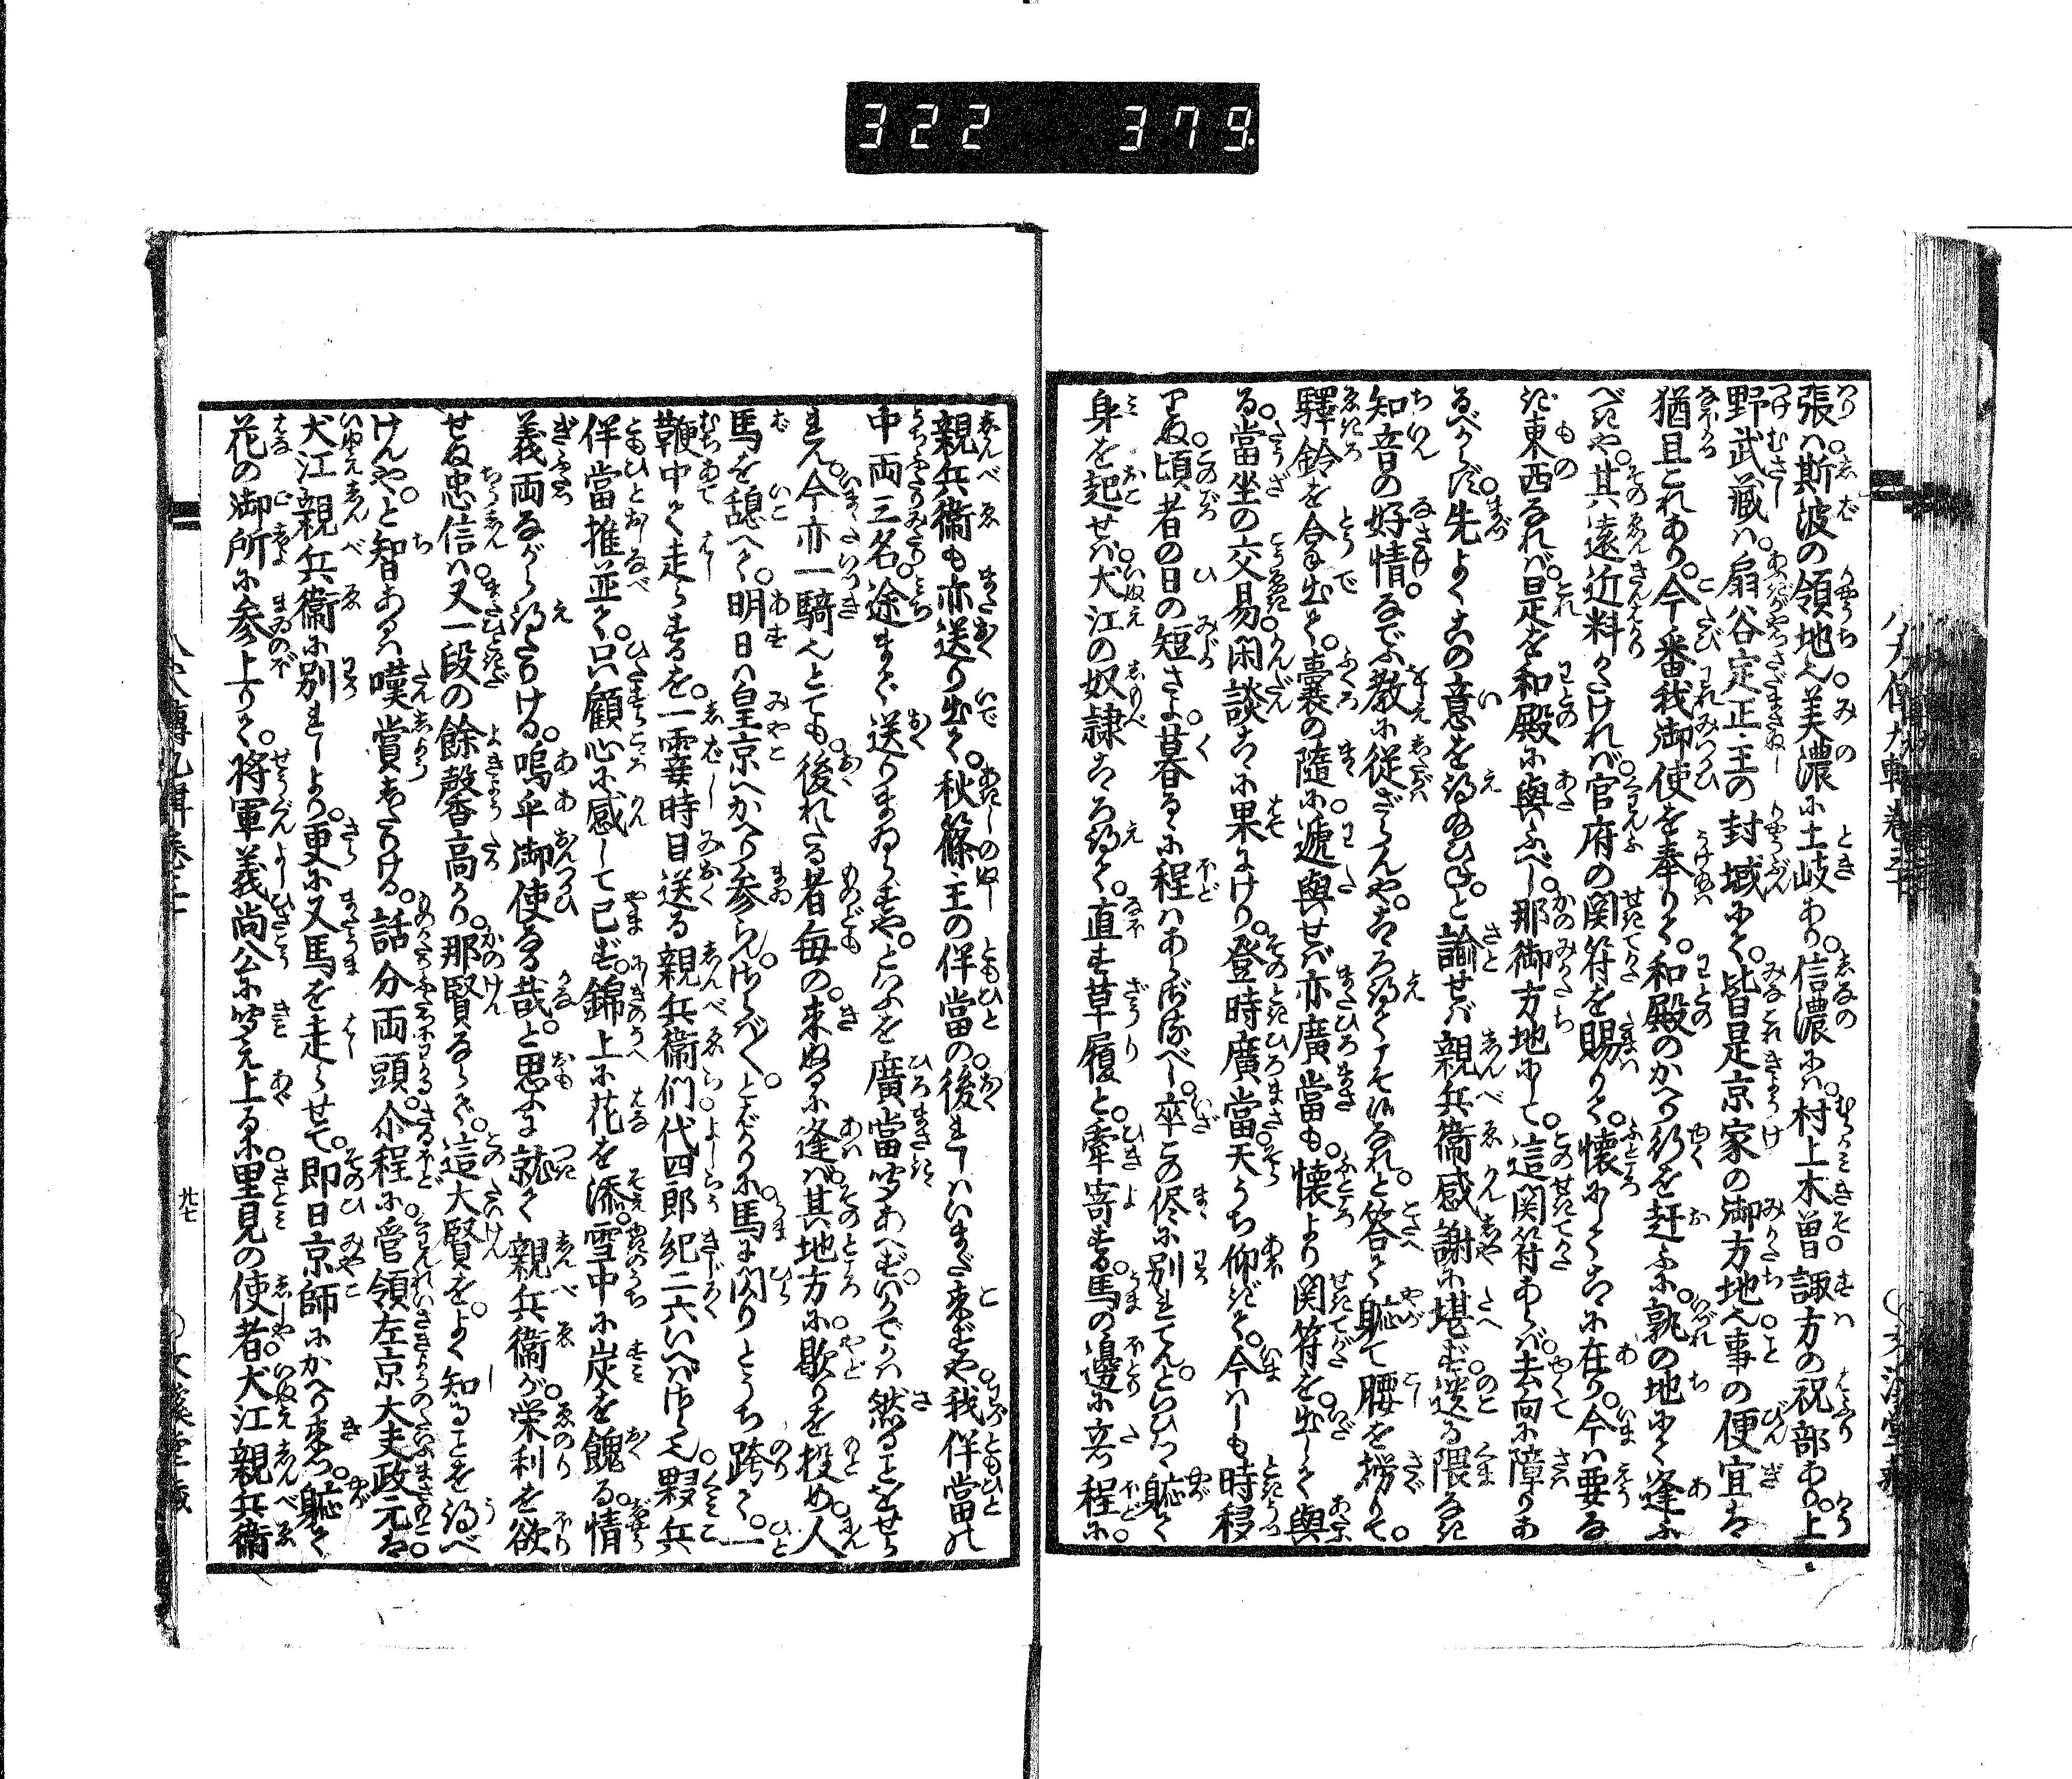 322 379
張ハ斯波の領地也。美濃に土岐あり。信濃にハ。村上木曽。諏方の祝部あり。上
野武藏ハ。扇谷定正主の封域にて。皆是京家の御方地也。事の便宜は
猶且これあり。今番我御使を奉りて。和殿のかへるを赶ふに。孰の地にて逢ふ
べきや。其遠近料りかたけれバ。官府の関符を賜りて。懐にしてこゝに在り。今ハ要な
き東西なれバ。是を和殿に與ふべし。那御方地にして。這関符あらバ。去向に障りあ
るべからず。先よくこの意を得給ひね。と諭せバ親兵衛感謝に堪ず。送る隈なき
知音の好情。などふ教に従ざらんや。こゝろ得てこそ候なれ。と答て躯て腰を撈りて。
驛鈴を合せ出て。嚢の隨に逓與せバ。亦廣當も。懐より関符を。出して與
る。當坐の交易閑談こゝに果にけり。登時廣當。天うち仰ぎて。今ハしも時移
りぬ。頃者の日の短さよ。暮るに程ハあらずなるべし。卒この侭に別れてん。といひつゝ躯て
身を起せバ。犬江の奴隷こゝろ得て。直す草履と。牽寄する。馬の邊に立つ程に。
親兵衛も亦送り出て。秋篠主の伴當の。後れしハいまだ来ずや。我伴當の
中両三名。途まで送りまゐらせずや。といふを廣當聞あへず。いかでかハ然ることをせら
れん。今亦一騎也とても。後れたる者毎の。来ぬるに逢バ。其地方に。歇りを投め。人
馬を憩へて。明日ハ皇京へかへり参らん。さらバ〳〵。とばかりに。馬に閃りとうち跨て。一
鞭中て走らするを。一霎時目送る親兵衛們。代四郎紀二六いへバさら也。夥兵
伴當推並て。只顧心に感して已ず。錦上に花を添。雪中に炭を餽る。情
義両ながら得たりける。嗚乎御使なる哉。と思ふに就て親兵衛が。栄利を欲
せぬ忠信ハ。又一段の餘馨高かり。那賢ならで。這大賢を。よく知ることを得べ
けんや。と智あるハ嘆賞したりける。話分両頭。尒程に。管領左京大夫政元は
犬江親兵衛に別れしより。更に又馬を走らせて。即日京師にかへり来つ。躯て
花の御所に参上りて。将軍義尚公に聞え上るに。里見の使者。犬江親兵衛
八犬傳九輯卷三十一
廿七
文溪堂藏